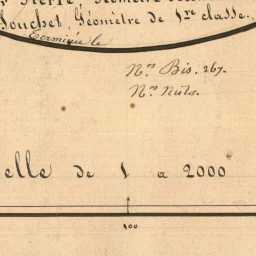 Pierre, Géomètre
Souchet, Géomètre de 1re classe.
Terminée le
Nos Bis. 267.
Nos Nuls.
elle de 1 a 2000
100